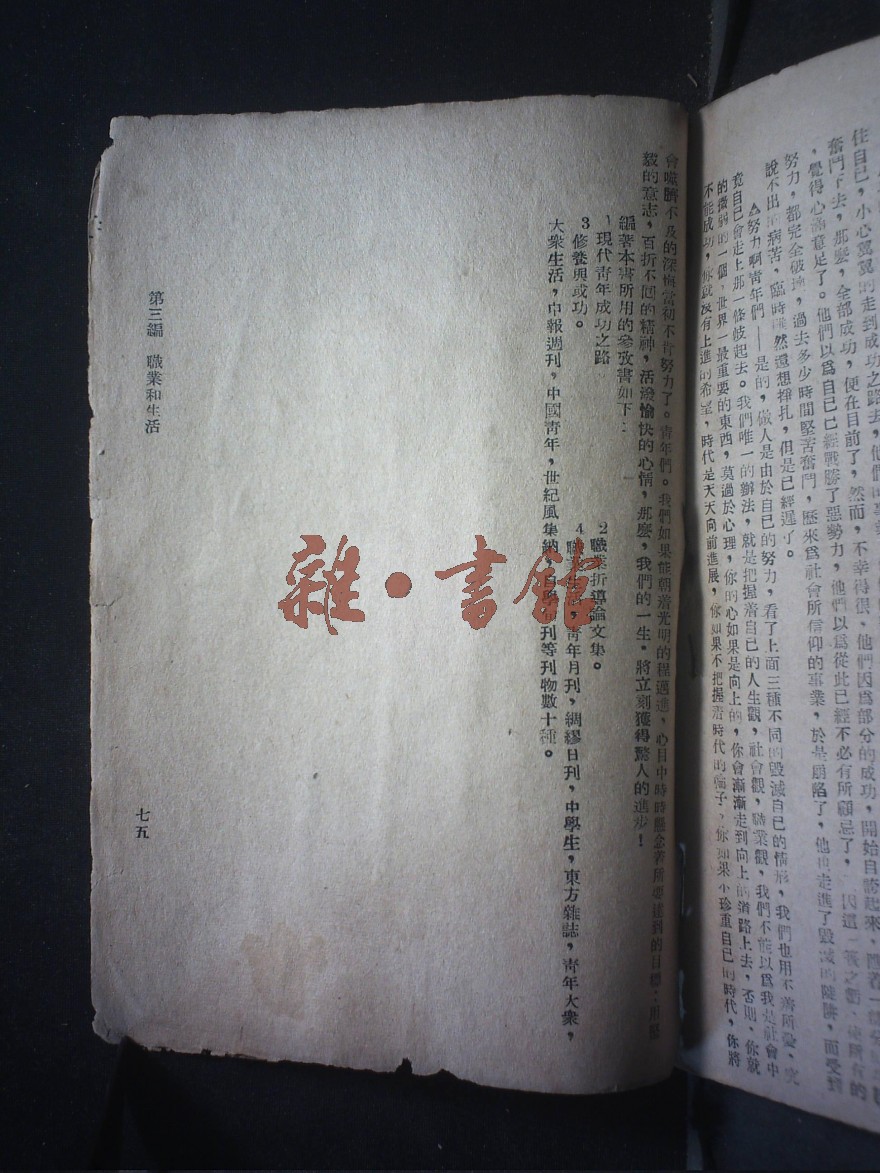 住自己，小心翼翼的走到成功之路去，他們的事業
奮鬥下去，那麼，全部成功，便在目前了，然而，不幸得很，他們因爲部分的成功，開始自誇起來，
，覺得心滿意足了。他們以爲自己已經戰勝了惡勢力，他們以爲從此已經不必有所顧忌了，
努力，都完全破壞，過去多少時間堅苦奮鬥，歷來爲社會所信仰的事業，於是崩陷了，他再走進了毀滅的陡阱，而受到
說不出的病苦，臨時雖然還想掙扎，但是已經遲了。
△努力啊青年們——是的，做人是由於自己的努力，看了上面三種不同的毀滅自己的情形，我們也用不着所說、究
竟自己會走上那一條岐起去。我們唯一的辦法，就是把握着自己的人生觀，社會觀，職業觀，我們不能以爲我是社會中
的微弱的一個，世界一最重要的東西，莫過於心理，你的心如果是向上的，你會漸漸走到向上的道路上去，否則，你就
不能成功，你就沒有上進的希望，時代是天天向前進展，你如果不把握着時代的輪子，你如果不珍重自己的時代，你將
會噬臍不及的深悔當初不肯努力了。青年們。我們如果能朝着光明的程邁進，心目中時時懸念著所要達到的目標：用堅
毅的意志，百折不回的精神，活潑愉快的心情，那麼，我們的一生，將立刻獲得驚人的進步！
編著本書所用的參攷書如下：
1現代青年成功之路　2職業折導論文集。
3修養與成功。　4職業生活，青年月刊，綢繆日刊，中學生，東方雜誌，青年大衆，
大衆生活，申報週刊，中國青年，世紀風集納，自學旬刊等刊物數十種。
第三編　職業和生活
七五
雜·書館